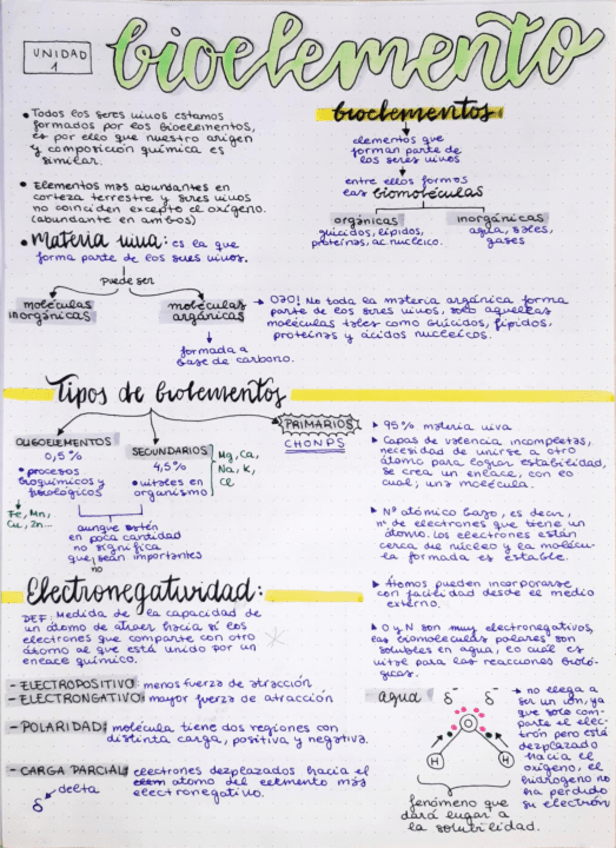 UNIDAD
1
bioelemento
• Todos los seres vivos estamos
formados por los bioelementos,
es por ello que nuestro origen
y composición química es
similar.
• Elementos mas abundantes en
corteza terrestre y seres vivos
no coinciden excepto el oxígeno.
(abundante en ambos)
• Materia viva: es la que
forma parte de los seres vivos.
puede ser
moléculas
inorgánicas
moléculas
orgánicas
formada a
base de carbono.
→ OJO! No toda la materia orgánica forma
parte de los seres vivos, solo aquellas
moléculas tales como glúcidos, lípidos,
proteínas y ácidos nucleicos.
bioelementos
elementos que
forman parte de
los seres vivos
entre ellos forman
las biomoléculas
orgánicas
glúcidos, lípidos,
proteínas, ac. nucleico.
inorgánicas
agua, sales,
gases
Tipos de biolementos
OLIGOELEMENTOS
0,5%
• procesos
bioquímicos y
fisiológicos
Fe, Mn,
Cu, Zn...
SECUNDARIOS
4,5%
• vitales en
organismo
Mg, Ca,
Na, K,
Cl
aunque estén
en poca cantidad
no significa
que sean importantes
no
PRIMARIOS
CHONPS
▸ 95% materia viva
▸ Capas de valencia incompletas,
necesidad de unirse a otro
átomo para lograr estabilidad,
se crea un enlace, con lo
cual, una molécula.
▸ Nº atómico bajo, es decir,
nº de electrones que tiene un
átomo. Los electrones están
cerca de núcleo y la molécu-
la formada es estable.
▸ Átomos pueden incorporarse
con facilidad desde el medio
externo.
▸ O y N son muy electronegativos,
las biomoleculas polares son
solubles en agua, lo cual es
vital para las reacciones bioló-
gicas.
Electronegatividad:
DEF: Medida de la capacidad de
un átomo de atraer hacia sí los
electrones que comparte con otro
átomo al que está unido por un
enlace químico.
- ELECTROPOSITIVO: menos fuerza de atracción
- ELECTRONGATIVO: mayor fuerza de atracción
- POLARIDAD: molécula tiene dos regiones con
distinta carga, positiva y negativa.
- CARGA PARCIAL: electrones desplazados hacia el
átomo del eelmento más
electronegativo.
δ delta
agua
δ⁻ δ⁻
O
H H
fenómeno que
dará lugar a
la solubilidad.
→ no llega a
ser un ion, ya
que solo com-
parte el elec-
trón pero está
dezplazado
hacia el
oxígeno, el
hidrógeno no
ha perdido
su electrón